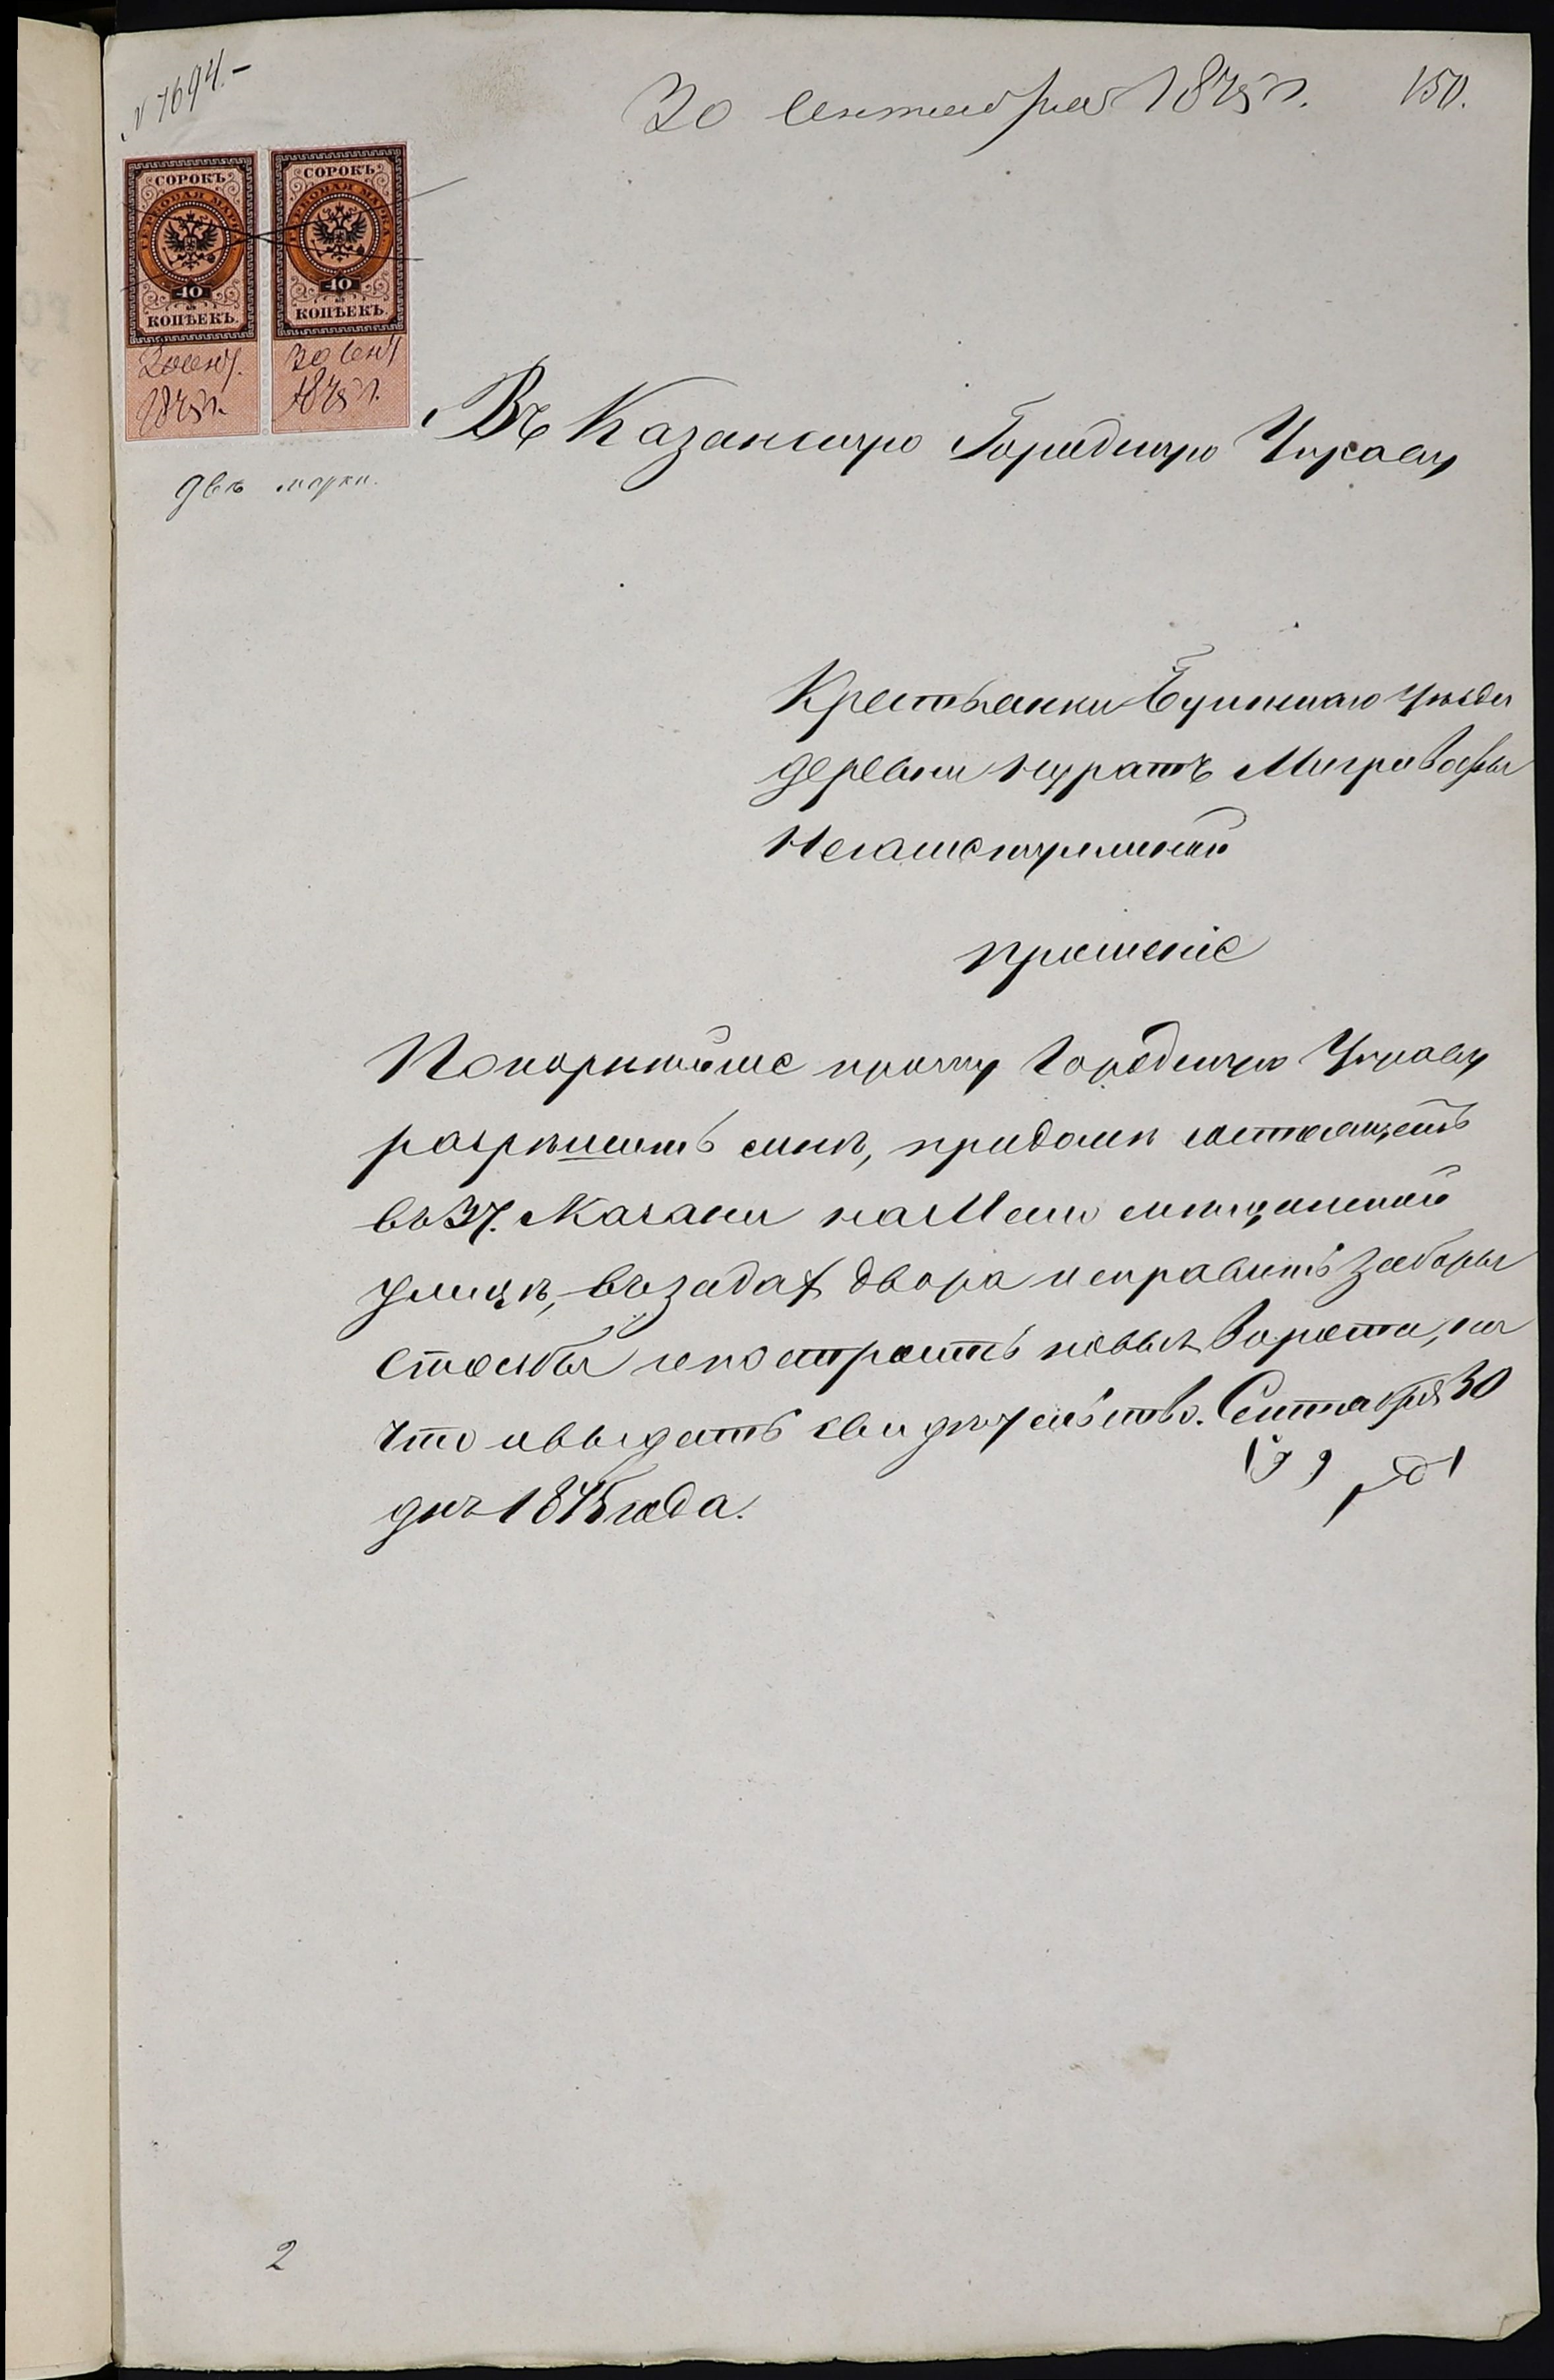 № 7694.-
30 Сентября 1875 г. 150.
СОРОКЪ СОРОКЪ
ГЕРБОВАЯ МАРКА ГЕРБОВАЯ МАРКА
40 40
КОПѢЕКЪ. КОПѢЕКЪ.
30 сент. 30 Сент
1875 г. 1875 г.
двѣ марки.
Въ Казанскую Городскую Управу
Крестьянки Буинскаго уѣзда
деревни Нуратъ
прошеніе
Покорнѣйше прошу Городскую Управу
разрѣшить мнѣ, при домѣ состоящемъ
въ 3 ч. Казани на мѣщанской
улицѣ, въ задах двора исправить заборы
столбы и построить новыя ворота, на
что и выдать свидѣтельство. Сентября 30
дня 1875 года.
2